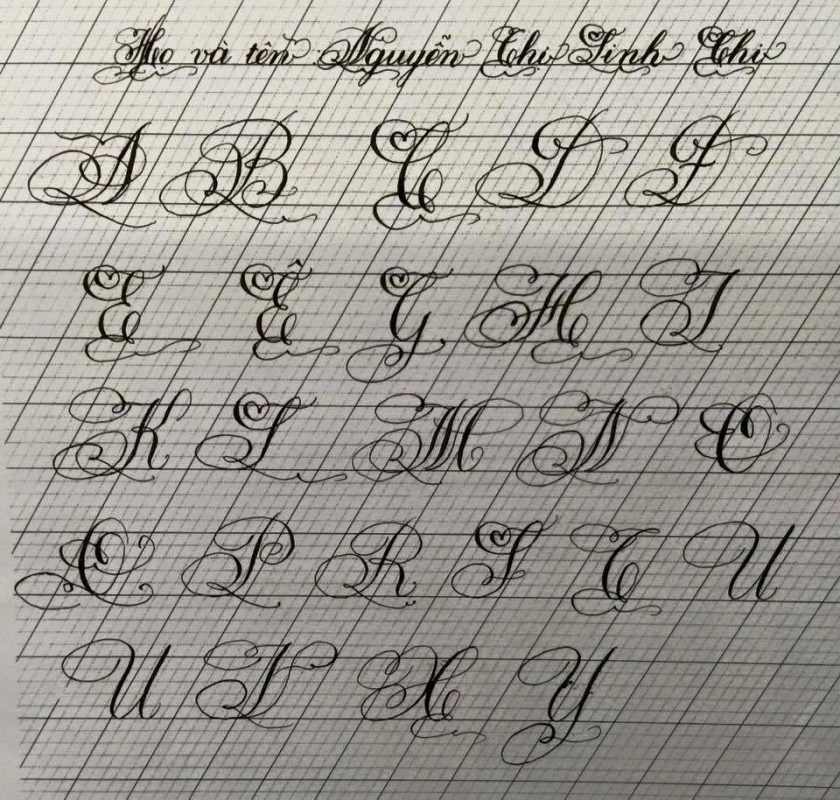 Họ và tên: Nguyễn Thị Linh Chi
A B C D Đ
E Ê G H I
K L M N O
Q P R S T U
U V X Y